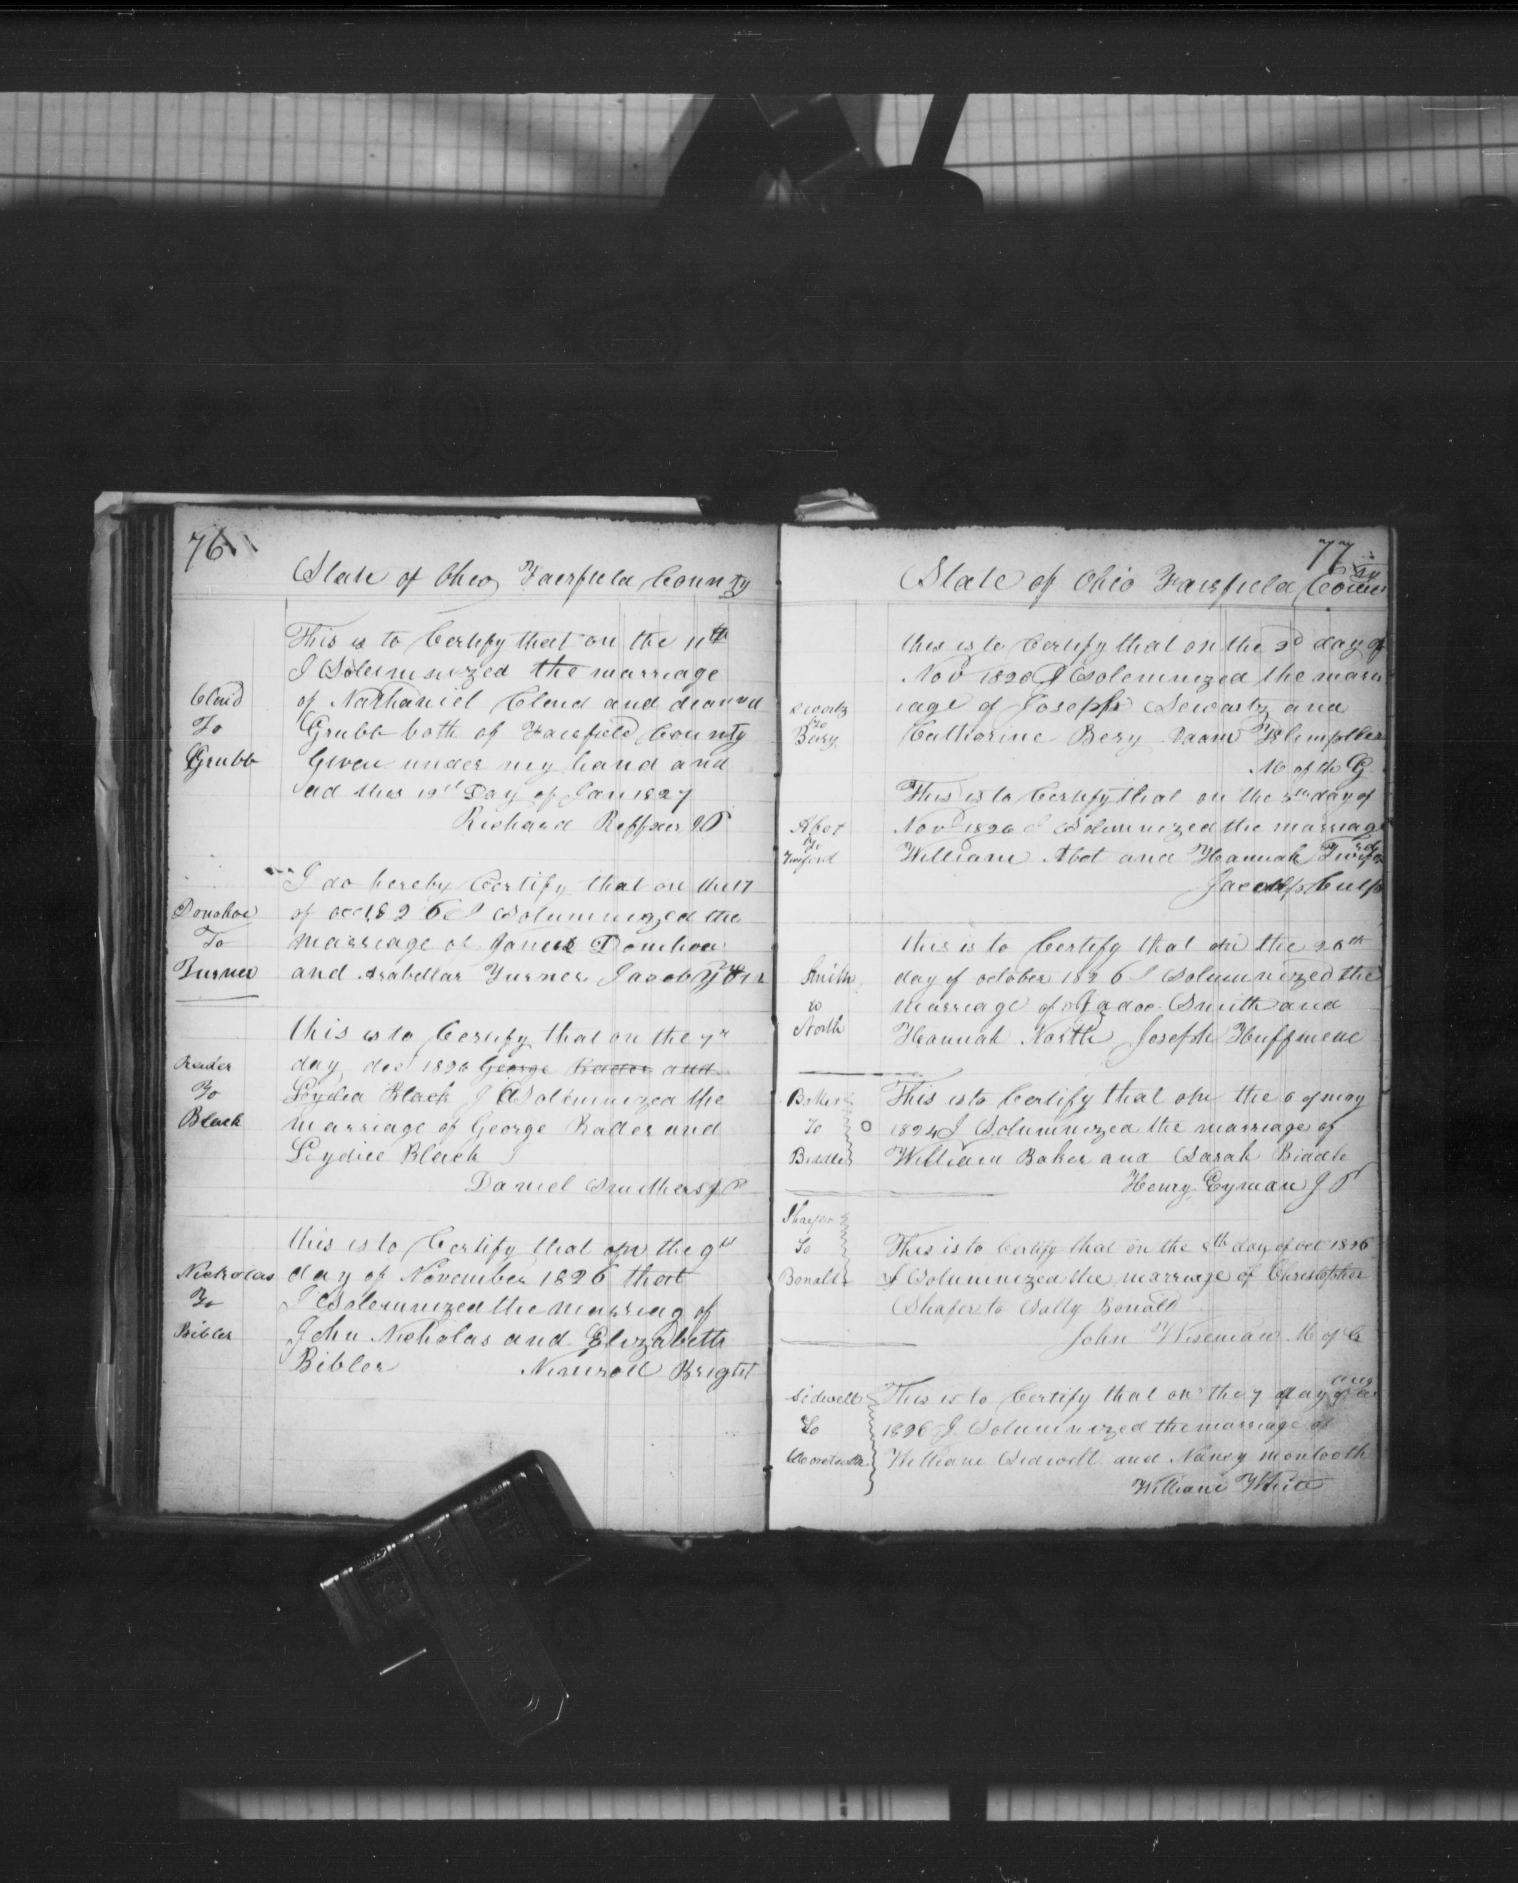 76
State of Ohio Fairfield County
This is to Certify that on the 11th
I Solemnized the marriage
Cloud
of Nathaniel Cloud and
To
Grubb both of Fairfield County
Grubb
Given under my hand and
this Day of Jan 1827
Richard Reffner J P
I do hereby Certify that on the 17
Donahoe
of Oct 1826 I Solumnized the
To
marriage of James Donohoe
Turner
and Arabellar Turner Jacob
this is to Certify that on the 7
Rader
day dec 1826 George Rader and
To
Lydia Black I Solumnized the
Black
marriage of George Rader and
Lydia Black
Daniel Smethers J P
this is to Certify that on the 9
Nickolas
day of November 1826 that
To
I Solemnized the marriag of
Bibler
John Nicholas and Elizabeth
Bibler Nimrod Bright
77
State of Ohio Fairfield County
this is to Certify that on the 3d day of
Nov 1826 I Solemnized the marr
Swartz
iage of Joseph Sewartz and
To
Bery
Catharine Bery
M of the G
This is to Certify that on the 5th day of
Abot
Nov 1826 I Solumnized the marriag
To
Twiford
William Abot and Hannah Twiford
Jacob Culp
this is to Certify that on the 26th
Smith
day of october 1826 I Solumnized the
to
marriage of Smith and
North
Hannah North Joseph Huffmene
Baker
This is to Certify that on the 6 of may
To
1824 I Solumnized the marriage of
Biddle
William Baker and Sarah Biddle
Henry Eyman J P
Shafer
To
This is to Certify that on the 8th day of oct 1826
Bonald
I Solumnized the marriage of Christopher
Shafer to Sally Bonald
John Wiseman M of G
Sidwell
This is to Certify that on the 7 day of aug
To
1826 I Solumnized the marriage of
William Sidwell and Nancy montooth
William White